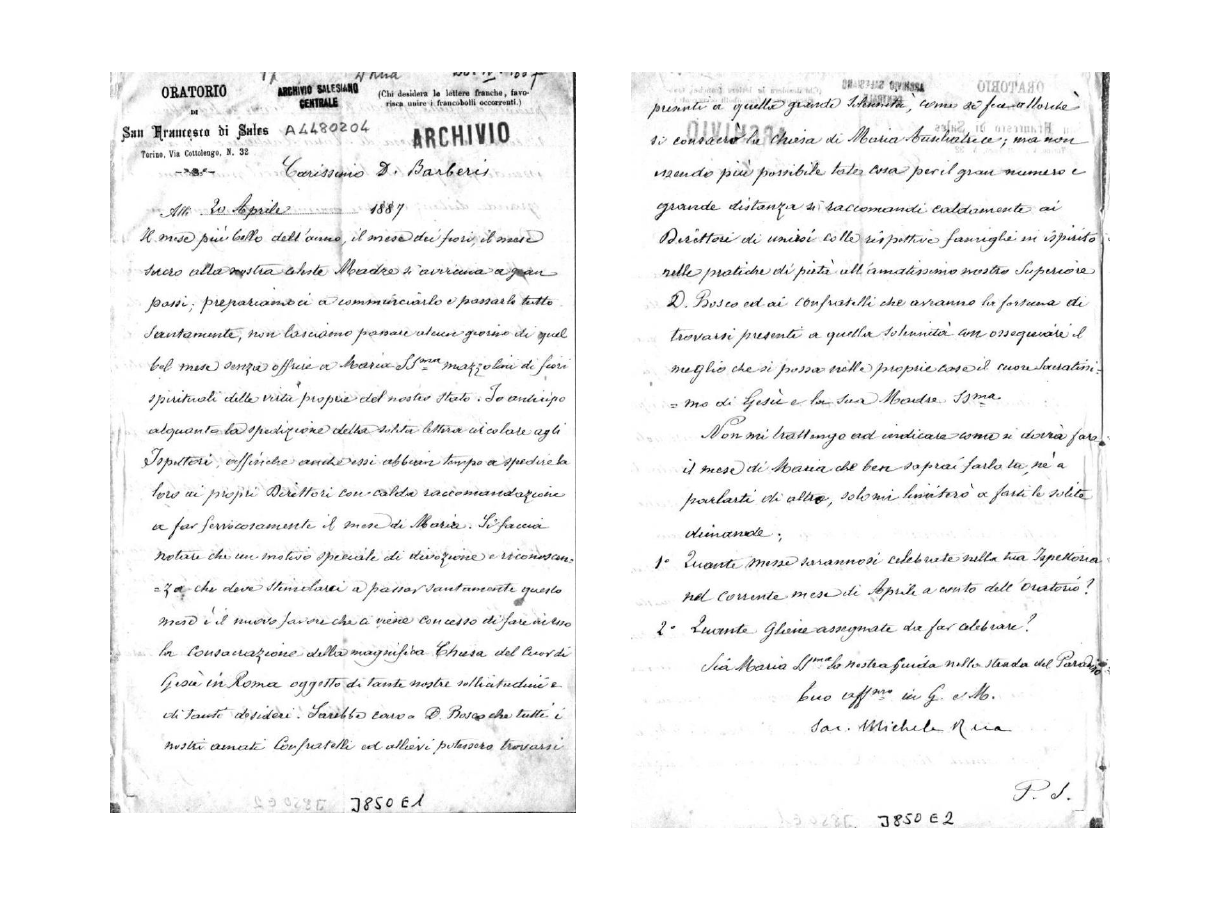 D Rua
ORATORIO
DI
San Francesco di Sales
Torino, Via Cottolengo, N. 32
ARCHIVIO SALESIANO
CENTRALE
A4480204
(Chi desidera le lettere franche, favo-
risca unire i francobolli occorrenti.)
ARCHIVIO
Carissimo D. Barberis
Atti 20 Aprile 1887
Il mese più bello dell'anno, il mese dei fiori, il mese
sacro alla nostra celeste Madre si avvicina a gran
passi; prepariamoci a cominciarlo e passarlo tutto
santamente, non lasciamo passare alcun giorno di quel
bel mese senza offrire a Maria SSma mazzolini di fiori
spirituali delle virtù proprie del nostro stato. Io anticipo
alquanto la spedizione della solita lettera circolare agli
Ispettori, affinchè anche essi abbian tempo a spedire la
loro ai propri Direttori con calda raccomandazione
a far fervorosamente il mese di Maria. Si faccia
notare che un motivo speciale di divozione e riconoscen-
=za che deve stimolarci a passar santamente questo
mese è il nuovo favore che ci viene concesso di fare in esso
la consacrazione della magnifica Chiesa del Cuor di
Gesù in Roma oggetto di tante nostre sollecitudini e
di tanti desideri. Sarebbe caro a D. Bosco che tutti i
nostri amati Confratelli ed allievi potessero trovarsi
J850E1
presenti a quella grande solennità, come si fece allorchè
si consacrò la chiesa di Maria Ausiliatrice; ma non
essendo più possibile tale cosa per il gran numero e
grande distanza si raccomandi caldamente ai
Direttori di unirsi colle rispettive famiglie in ispirito
nelle pratiche di pietà all'amatissimo nostro Superiore
D. Bosco ed ai confratelli che avranno la fortuna di
trovarsi presenti a quella solennità con ossequiare il
meglio che si possa nelle proprie case il cuore Sacratissi-
=mo di Gesù e la Sua Madre SSma
Non mi trattengo ad indicare come si dovrà fare
il mese di Maria che ben saprai farlo tu, nè a
parlarti di altro, solo mi limiterò a farti le solite
dimande;
1° Quante messe sarannosi celebrate nella tua Ispettoria
nel corrente mese di Aprile a conto dell'Oratorio?
2° Quante Gliene assegnate da far celebrare?
Sia Maria SSma la nostra Guida nella strada del Paradiso
Tuo affmo in G. e M.
Sac. Michele Rua
P. S.
J850E2